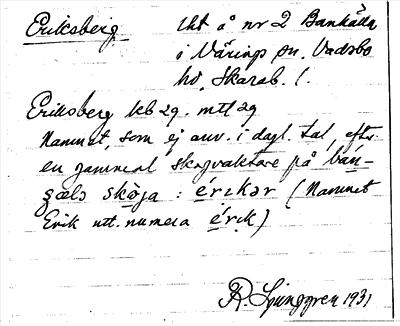 Eriksberg lht å nr 2 Bankälla
i Värings sn. Vadsbo
hd, Skarab. l.
Eriksberg kb 29. mtl 29
Namnet, som ej anv. i dagl. tal, efter
en gammal skogvaktare på bán-
skòja : érɪkər (Namnet
Erik utt. numera érɪk)
R. Ljunggren 1931